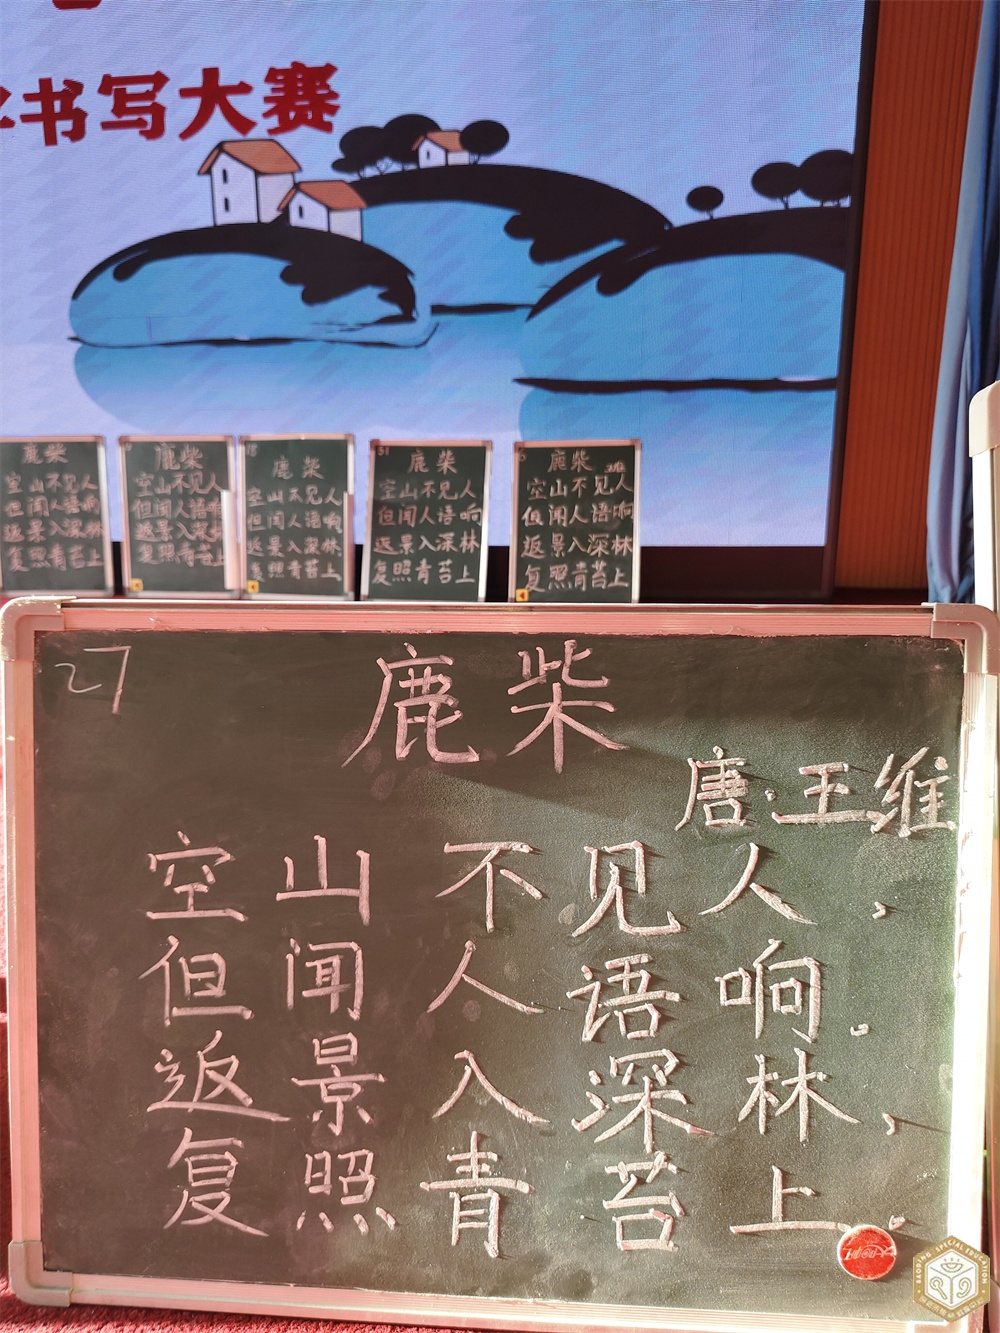 书写大赛
鹿柴
空山不见人
但闻人语响
返景入深林
复照青苔上
鹿柴
空山不见人
但闻人语响
返景入深林
复照青苔上
鹿柴
空山不见人
但闻人语响
返景入深林
复照青苔上
鹿柴
空山不见人
但闻人语响
返景入深林
复照青苔上
鹿柴
空山不见人
但闻人语响
返景入深林
复照青苔上
27
鹿柴
唐·王维
空山不见人，
但闻人语响。
返景入深林，
复照青苔上。
BAODING SPECIAL EDUCATION